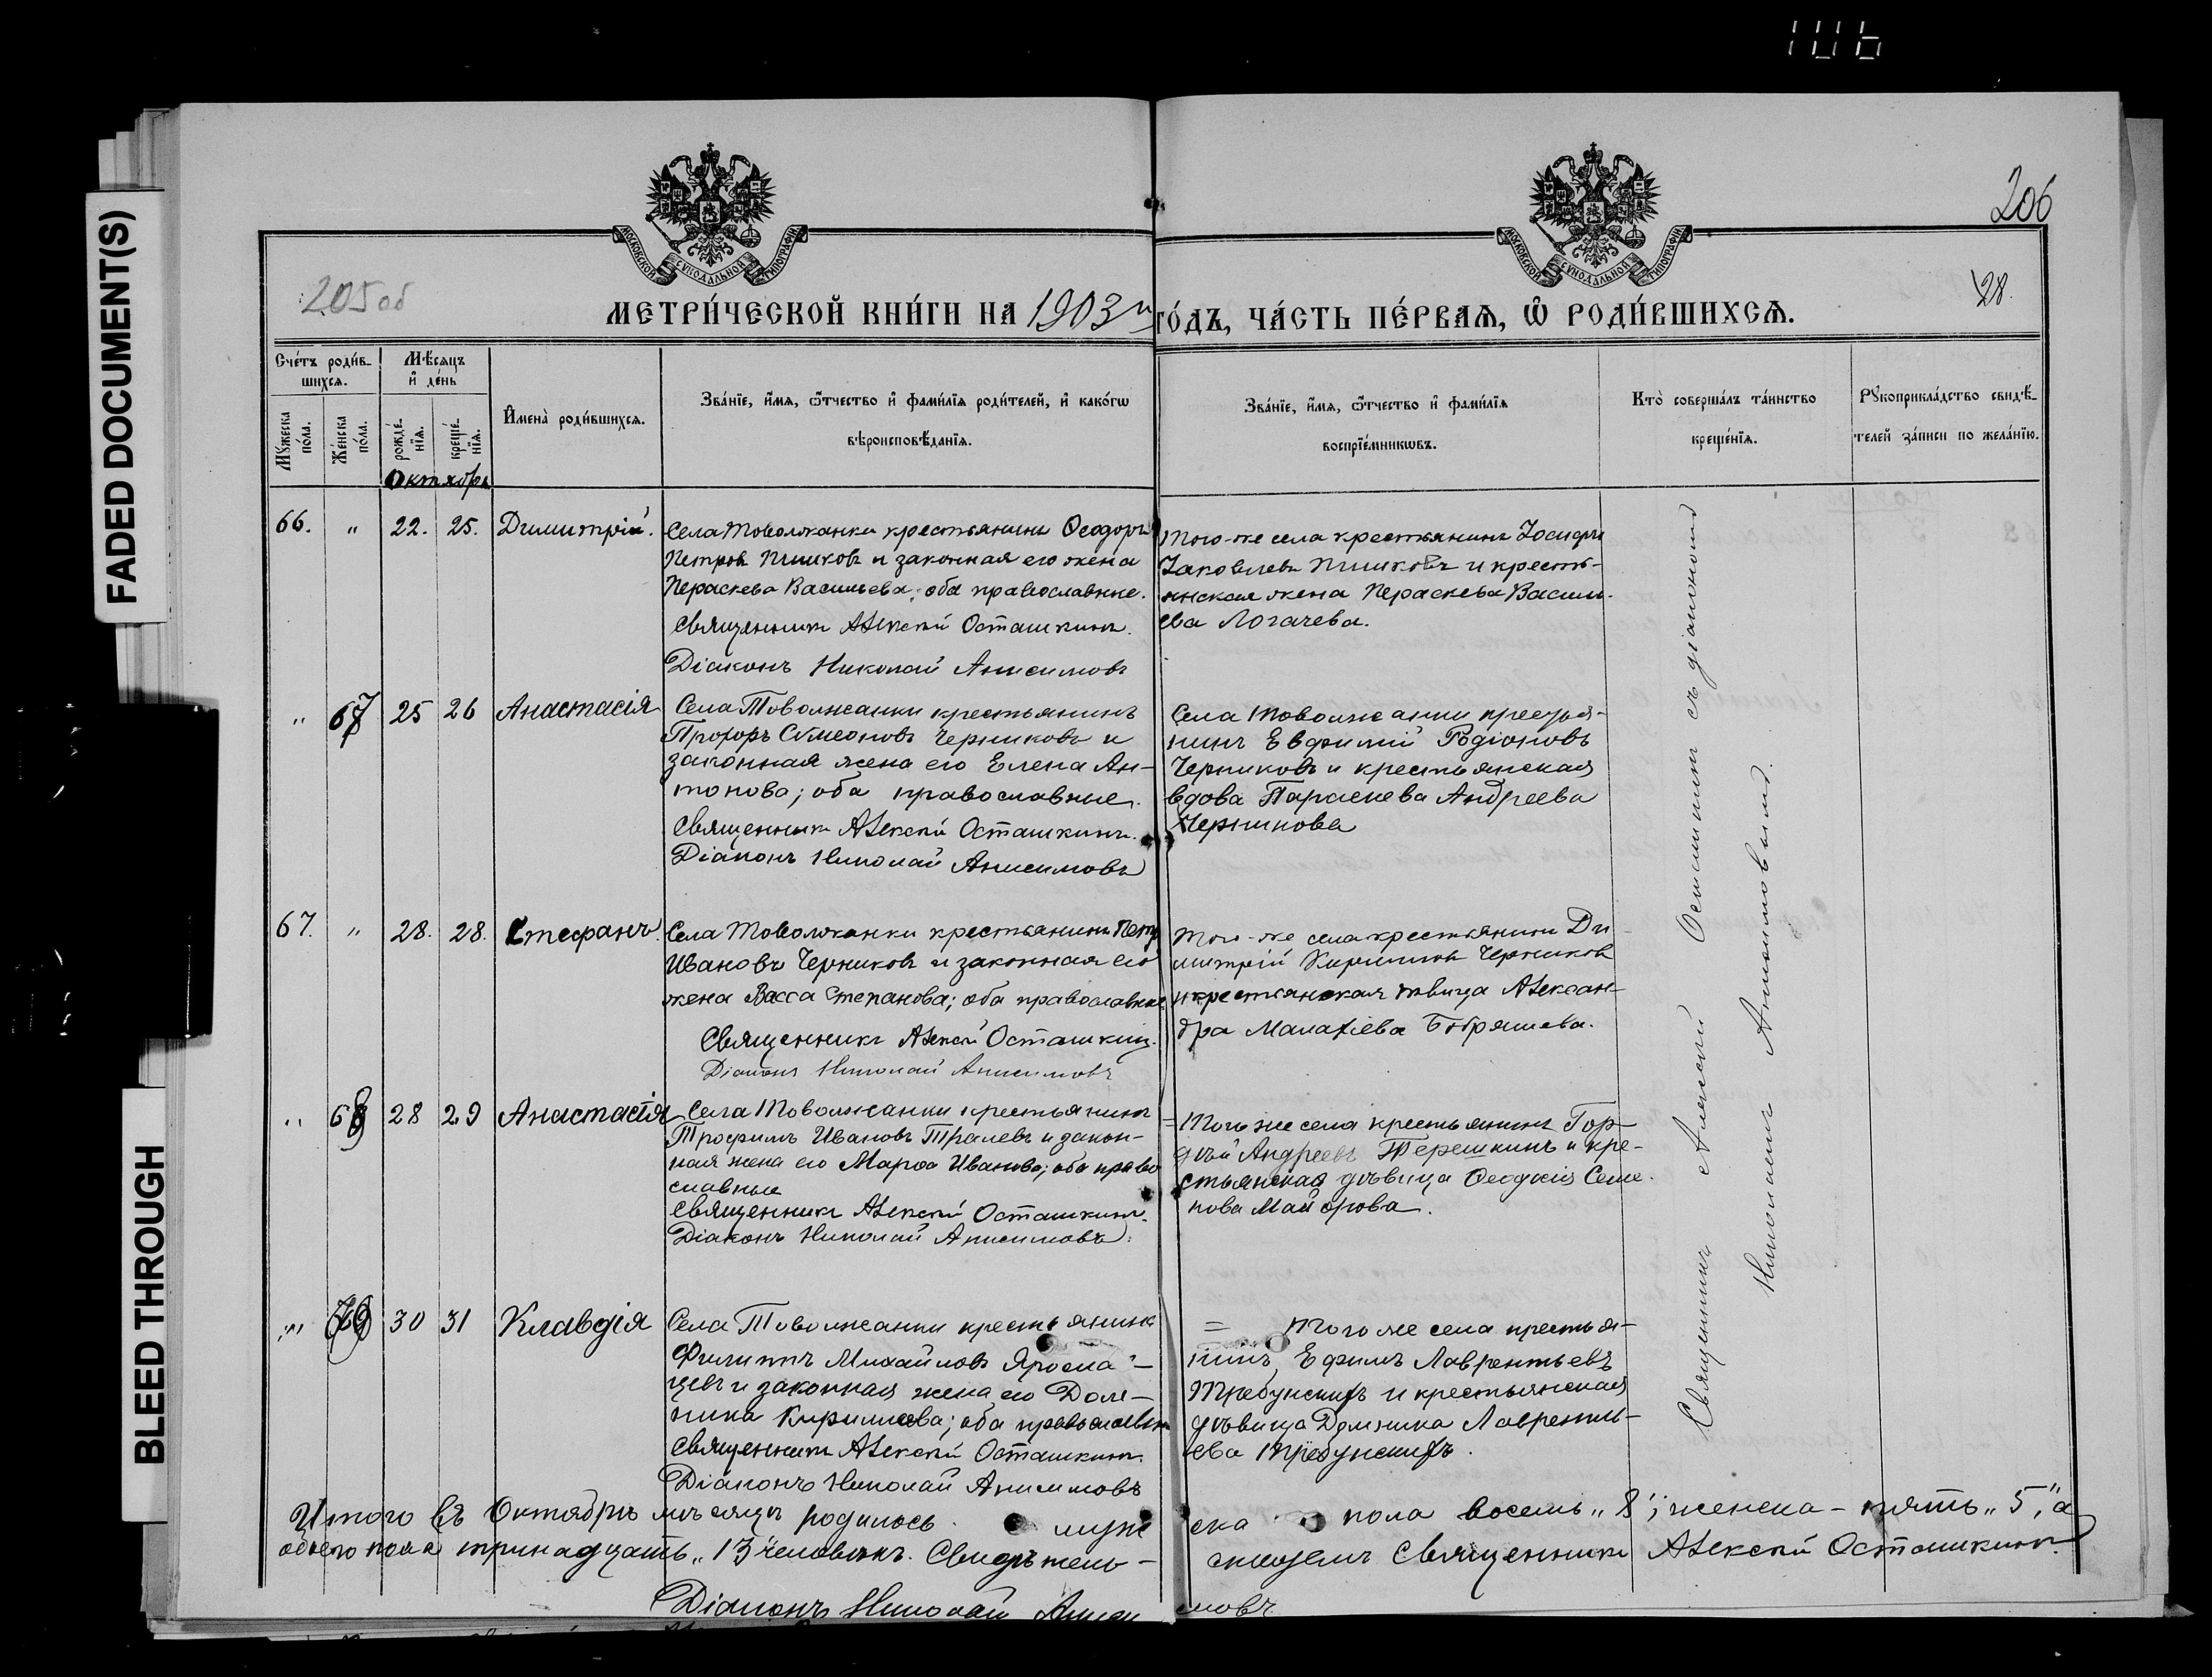 106
FADED DOCUMENT(S)
BLEED THROUGH
МОСКОВСКОЙ СѴНОДАЛЬНОЙ ТИПОГРАФІИ
МОСКОВСКОЙ СѴНОДАЛЬНОЙ ТИПОГРАФІИ
206
205об
28.
МЕТРИ́ЧЕСКОЙ КНИ́ГИ НА 1903й ГО́ДЪ, ЧА́СТЬ ПЕ́РВАѦ, Ѡ҆ РОДИ́ВШИХСѦ.
Счéтъ роди́в-
шихсѧ.
Мꙋжеска по́ла.
Же́нска по́ла.
Мѣ́сѧцъ
и҆ де́нь
рожде́-
нїѧ.
креще́-
нїѧ.
И҆мена̀ роди́вшихсѧ.
Зва́нїе, и҆́мѧ, ѻ҆́тчество и҆ фами́лїѧ роди́телей, и҆ како́гѡ
вѣроисповѣ́данїѧ.
Зва́нїе, и҆́мѧ, ѻ҆́тчество и҆ фами́лїѧ
воспрїе́мникѡвъ.
Кто̀ соверша́лъ та́инство
креще́нїѧ.
Рꙋкоприкла́дство свидѣ́-
телей за́писи по жела́нїю.
Октябрь
66. " 22. 25. Димитрій.
Села Товолжанки крестьянинъ Ѳеодоръ
Петровъ Пишковъ и законная его жена
Пераскева Васильева; оба православные.
Священникъ Алексій Осташкинъ.
Діаконъ Николай Анисимовъ
Того-же села крестьянинъ Іосифъ
Іаковлевъ Пишковъ и кресть-
янская жена Пераскева Василь-
ева Логачева.
Священникъ Алексій Осташкинъ съ діакономъ
Николаемъ Анисимовымъ.
" 67 25 26 Анастасія
Села Товолжанки крестьянинъ
Прохоръ Сѵмеоновъ Черниковъ и
законная жена его Елена Ан-
тонова; оба православные.
Священникъ Алексій Осташкинъ.
Діаконъ Николай Анисимовъ
Села Товолжанки крестья-
нинъ Евфимій Родіоновъ
Черниковъ и крестьянская
вдова Параскева Андреева
Черникова
67. " 28. 28. Стефанъ.
Села Товолжанки крестьянинъ Петр
Ивановъ Черниковъ и законная его
жена Васса Степанова; оба православные
Священникъ Алексій Осташкинъ.
Діаконъ Николай Анисимовъ
Того-же села крестьянинъ Ди-
митрій Кириловъ Черниковъ
и крестьянская дѣвица Алексан-
дра Малахіева Бобряшева.
" 68 28 29 Анастасія
Села Товолжанки крестьянинъ
Трофимъ Ивановъ Тралевъ и закон-
ная жена его Марѳа Иванова; оба право
славные
Священникъ Алексій Осташкинъ.
Діаконъ Николай Анисимовъ.
= Того же села крестьянинъ Гор-
дѣй Андреевъ Терешкинъ и кре-
стьянская дѣвица Ѳеодосія Семе-
нова Майорова.
" 69 30 31 Клавдія
Села Товолжанки крестьянинъ
Филиппъ Михайловъ Яросла-
цевъ и законная жена его Дом-
ника Кирилова; оба православн
Священникъ Алексій Осташкинъ.
Діаконъ Николай Анисимовъ
= Того же села крестья-
нинъ Ефимъ Лаврентьевъ
Требунскихъ и крестьянская
дѣвица Домника Лавренть-
ева Требунскихъ.
Итого въ Октябрѣ мѣсяцѣ родилось мужеска пола восемь „8"; женска - пять „5", а
обоего пола тринадцать „13" человѣкъ. Свидѣтель-
ствуемъ Священникъ Алексій Осташкинъ.
Діаконъ Николай Анисимовъ